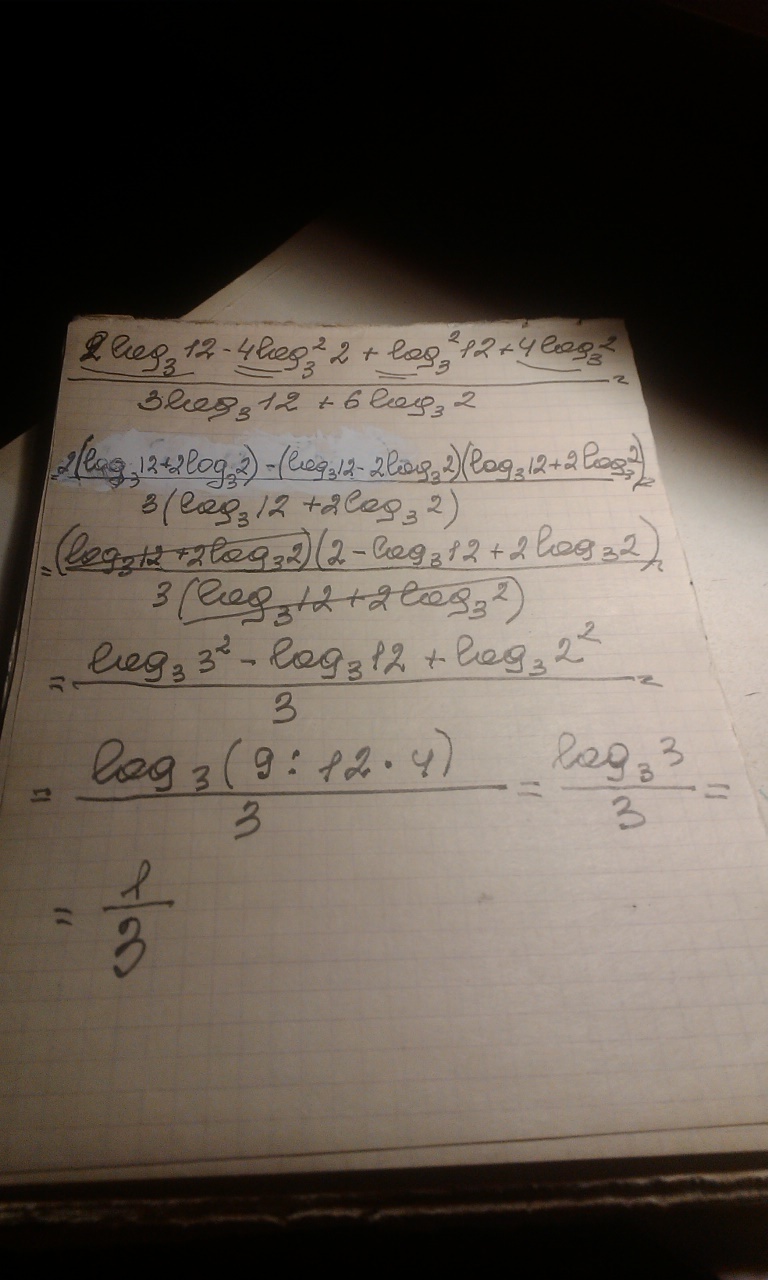 2log₃12 - 4log₃²2 + log₃²12 + 4log₃2 =
3log₃12 + 6log₃2
= 2(log₃12+2log₃2) - (log₃12 - 2log₃2)(log₃12+2log₃2) =
3(log₃12 + 2log₃2)
= (log₃12 + 2log₃2)(2 - log₃12 + 2log₃2) =
3(log₃12 + 2log₃2)
= log₃3² - log₃12 + log₃2² =
3
= log₃(9 : 12 · 4) = log₃3 =
3 3
= 1
3